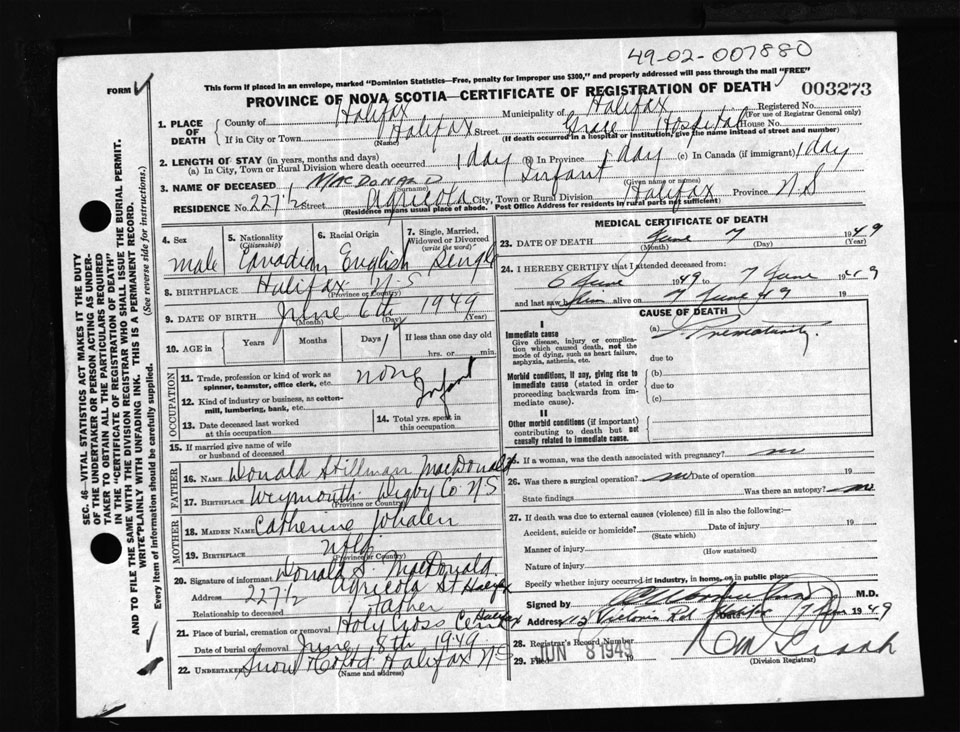 49-02-007880
This form if placed in an envelope, marked "Dominion Statistics—Free, penalty for improper use $300," and properly addressed will pass through the mail "FREE"
FORM
PROVINCE OF NOVA SCOTIA—CERTIFICATE OF REGISTRATION OF DEATH
003273
1. PLACE OF DEATH
County of Halifax Municipality of Halifax Registered No.
(For use of Registrar General only)
If in City or Town Halifax Street Grace Hospital House No.
(Name) (If death occurred in a hospital or institution, give the name instead of street and number)
2. LENGTH OF STAY (in years, months and days)
(a) In City, Town or Rural Division where death occurred 1 day (b) In Province 1 day (c) In Canada (if immigrant) 1 day
3. NAME OF DECEASED MACDONALD Infant
(Surname) (Given name or names)
RESIDENCE No. 227½ Agricola City, Town or Rural Division Halifax Province N.S
(Residence means usual place of abode. Post Office Address for residents in rural parts not sufficient)
4. Sex
male
5. Nationality (Citizenship)
Canadian
6. Racial Origin
English
7. Single, Married, Widowed or Divorced (write the word)
Single
8. BIRTHPLACE Halifax N.S
(Province or Country)
9. DATE OF BIRTH June 6th 1949
(Month) (Day) (Year)
10. AGE in Years Months Days 1 If less than one day old
hrs. or min.
OCCUPATION
11. Trade, profession or kind of work as spinner, teamster, office clerk, etc. none
12. Kind of industry or business, as cotton-mill, lumbering, bank, etc. Infant
13. Date deceased last worked at this occupation
14. Total yrs. spent in this occupation
15. If married give name of wife or husband of deceased
FATHER
16. NAME Donald Stillman MacDonald
17. BIRTHPLACE Weymouth Digby Co N.S
(Province or Country)
MOTHER
18. MAIDEN NAME Catherine
19. BIRTHPLACE Nfld
(Province or Country)
20. Signature of informant Donald S. MacDonald
Address 227½ Agricola St Halifax
Relationship to deceased Father
21. Place of burial, cremation or removal Holy Cross Cem Halifax
Date of burial or removal June 8th 1949
22. UNDERTAKER Snow & Co Ltd Halifax N.S
(Name and address)
MEDICAL CERTIFICATE OF DEATH
23. DATE OF DEATH June 7 1949
(Month) (Day) (Year)
24. I HEREBY CERTIFY that I attended deceased from:
6 June 1949 to 7 June 1949
and last saw him alive on 7 June 49 19
CAUSE OF DEATH
I
Immediate cause
Give disease, injury or complication which caused death, not the mode of dying, such as heart failure, asphyxia, asthenia, etc.
(a) Prematurity.
due to
Morbid conditions, if any, giving rise to immediate cause (stated in order proceeding backwards from immediate cause).
(b)
due to
(c)
II
Other morbid conditions (if important) contributing to death but not causally related to immediate cause.
25. If a woman, was the death associated with pregnancy? no
26. Was there a surgical operation? no Date of operation 19
State findings Was there an autopsy? no
27. If death was due to external causes (violence) fill in also the following:
Accident, suicide or homicide? Date of injury 19
(State which)
Manner of injury
(How sustained)
Nature of injury
Specify whether injury occurred in industry, in home, or in public place
Signed by M.D.
Address Victoria Rd Halifax Date 7 June 1949
28. Registrar's Record Number
29. Filed JUN 8 1949
(Division Registrar)
SEC. 46—VITAL STATISTICS ACT MAKES IT THE DUTY
OF THE UNDERTAKER OR PERSON ACTING AS UNDER-
TAKER TO OBTAIN ALL THE PARTICULARS REQUIRED
IN THE "CERTIFICATE OF REGISTRATION OF DEATH"
AND TO FILE THE SAME WITH THE DIVISION REGISTRAR WHO SHALL ISSUE THE BURIAL PERMIT.
WRITE PLAINLY WITH UNFADING INK. THIS IS A PERMANENT RECORD.
Every item of information should be carefully supplied.
(See reverse side for instructions.)